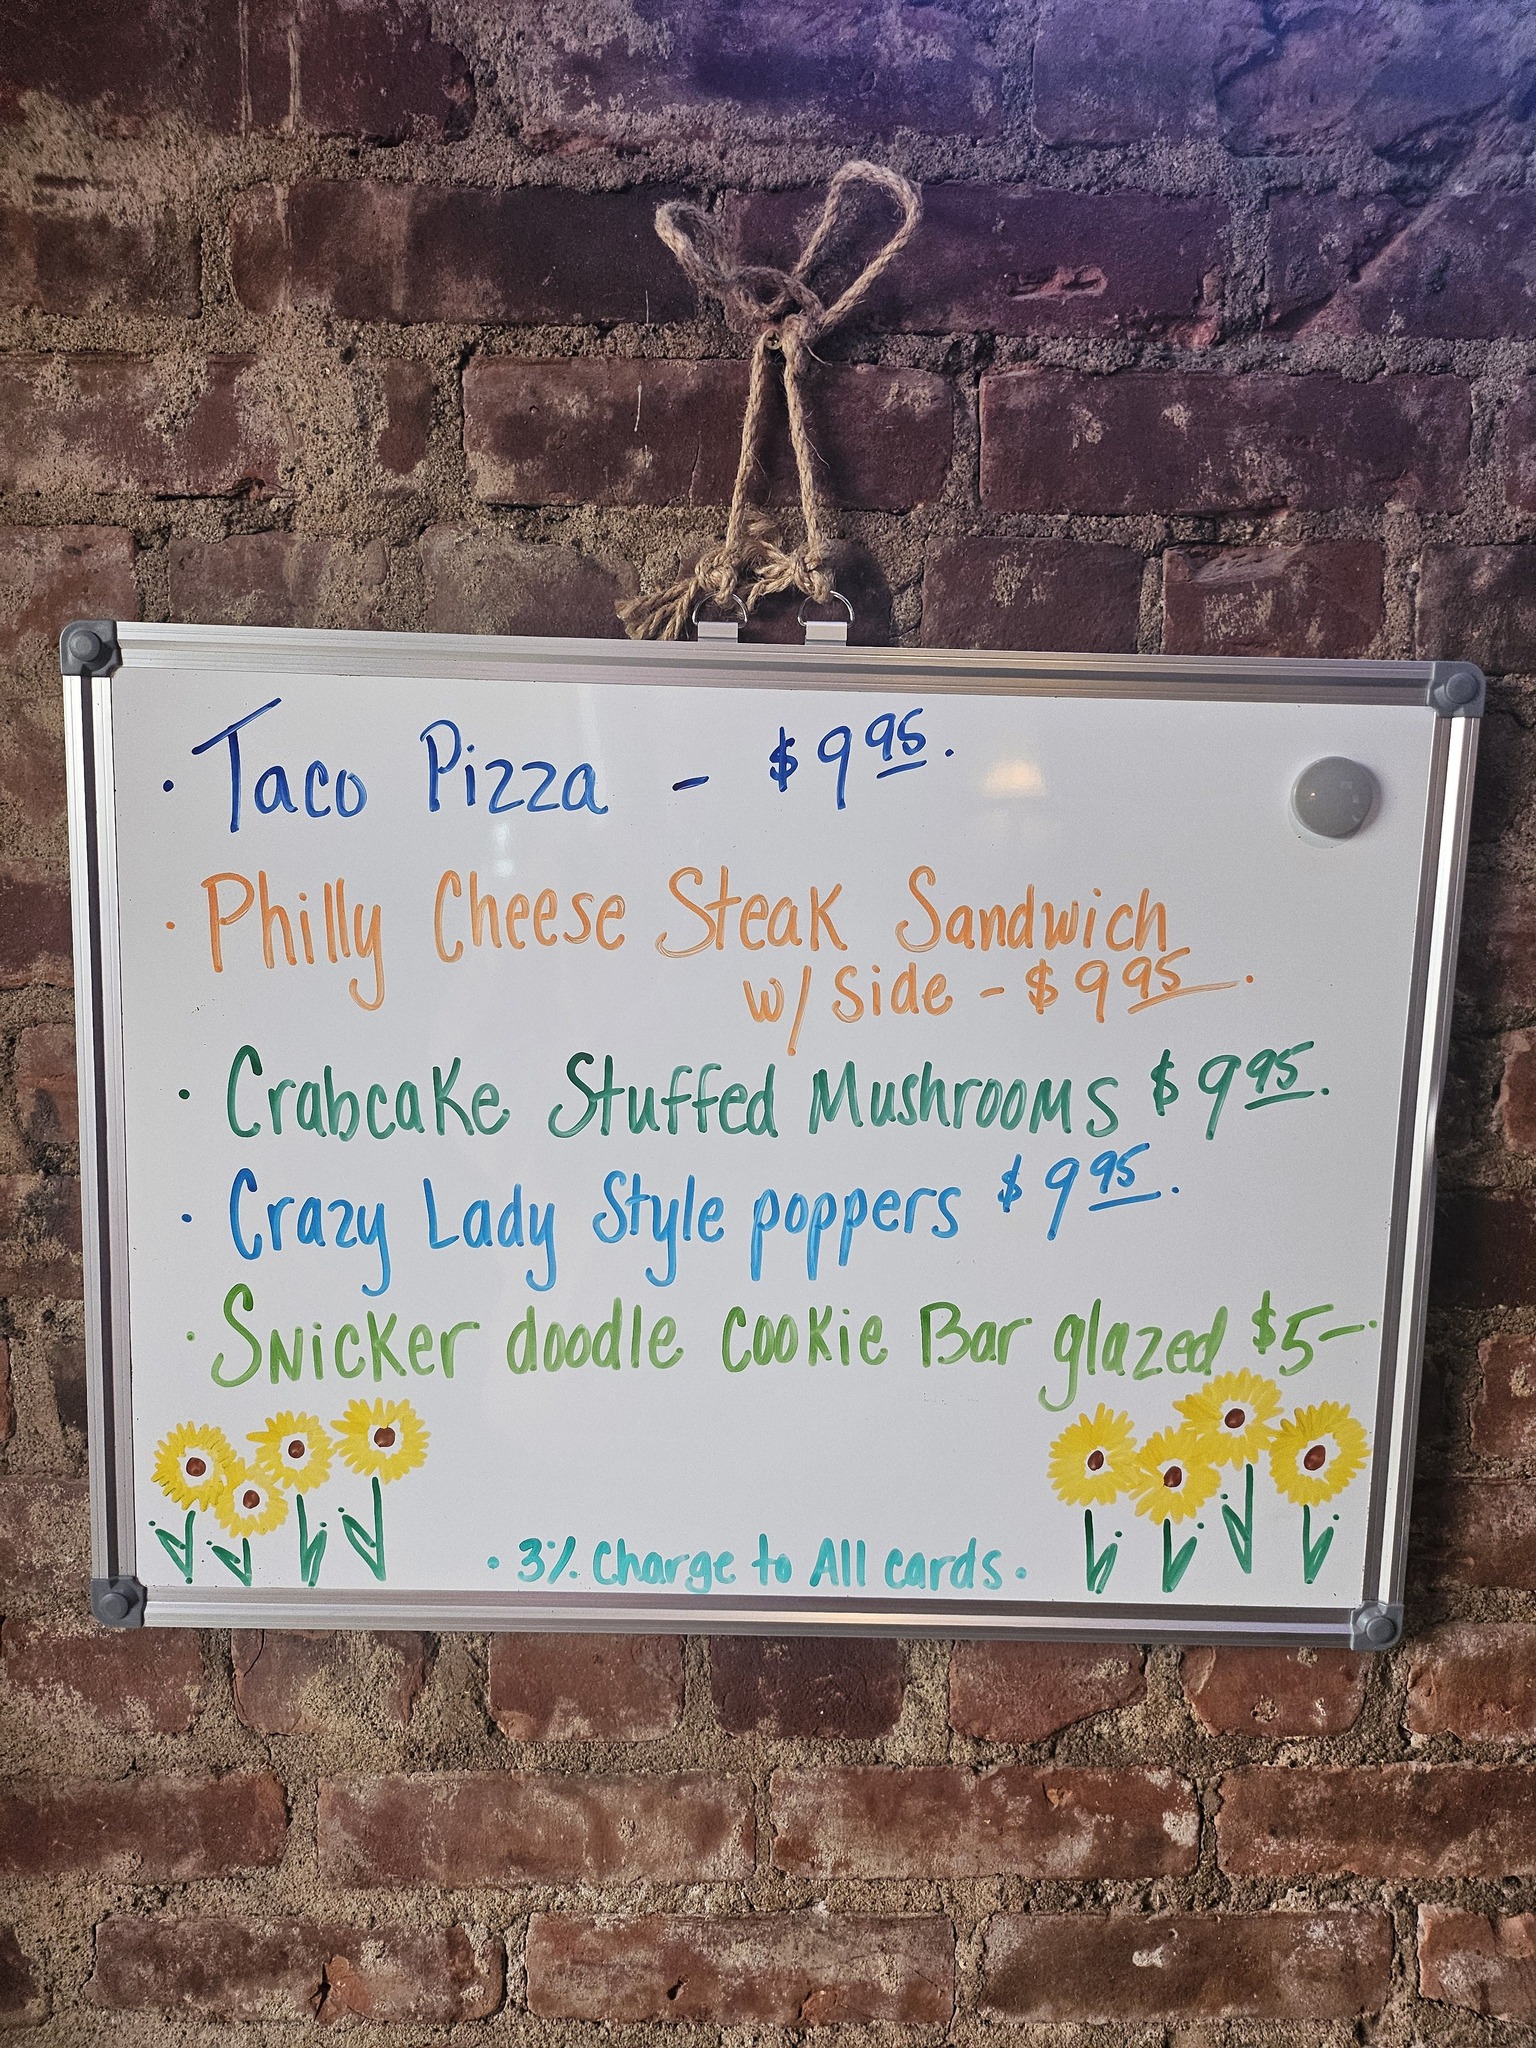 · Taco Pizza - $9.95.
· Philly Cheese Steak Sandwich
w/ Side - $9.95.
· Crabcake Stuffed Mushrooms $9.95.
· Crazy Lady Style poppers $9.95.
· Snicker doodle cookie Bar glazed $5-.
· 3% Charge to All cards.